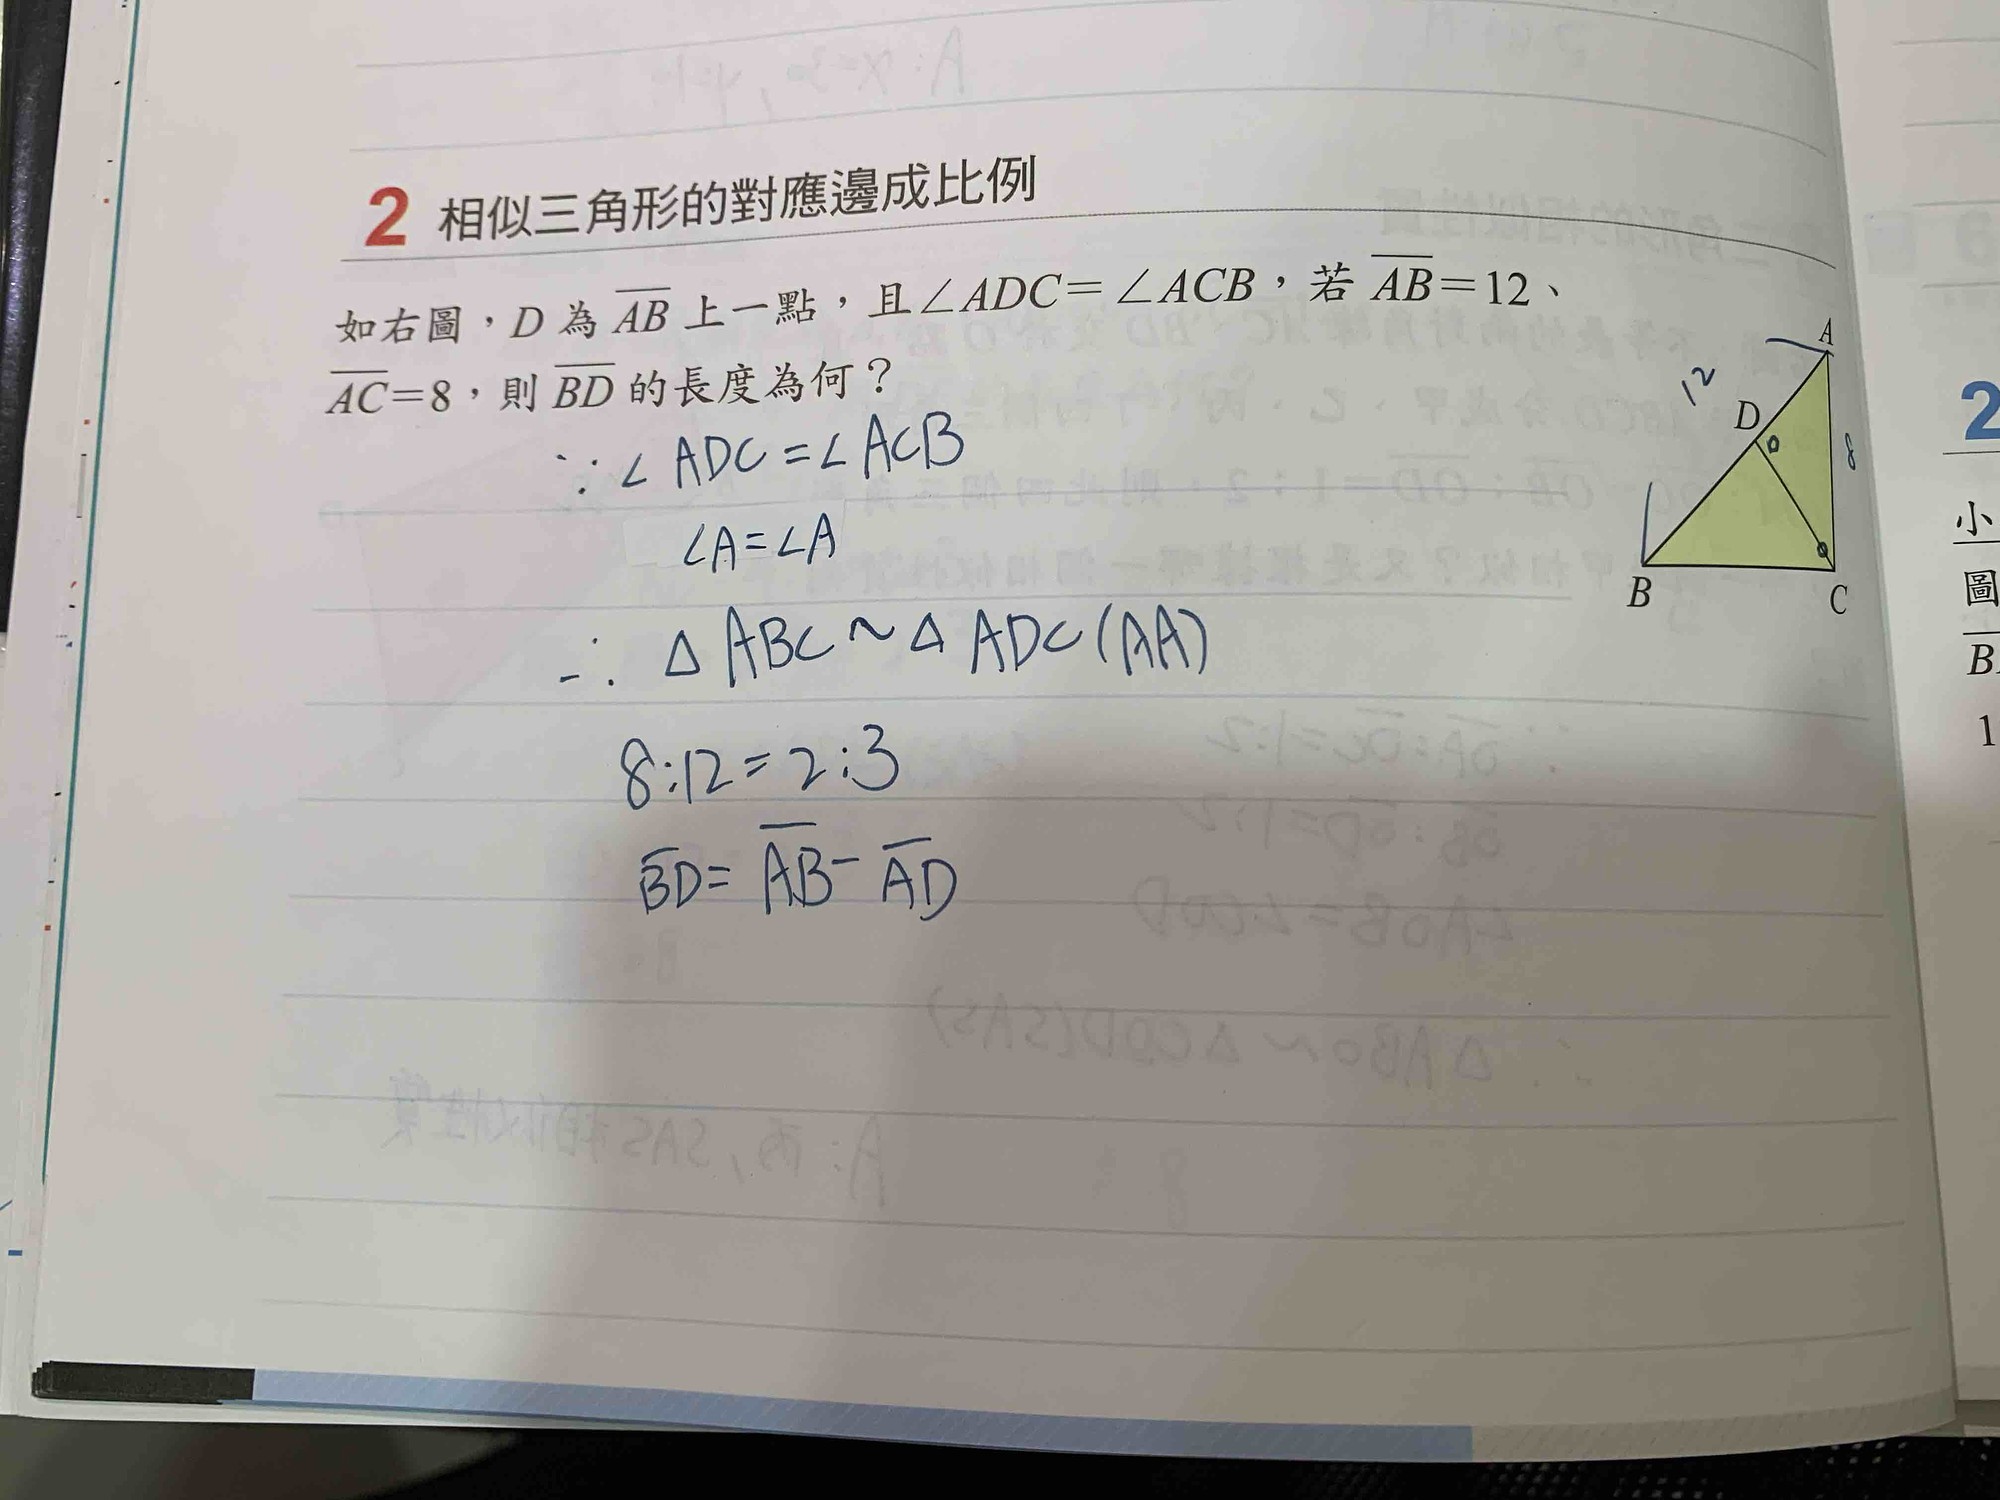 2 相似三角形的對應邊成比例
如右圖，D 為 AB 上一點，且∠ADC＝∠ACB，若 AB＝12、
AC＝8，則 BD 的長度為何？
∵∠ADC=∠ACB
∠A=∠A
∴ △ABC~△ADC(AA)
8:12=2:3
BD=AB-AD
A
12
D
8
B
C
2
小
圖
B
1